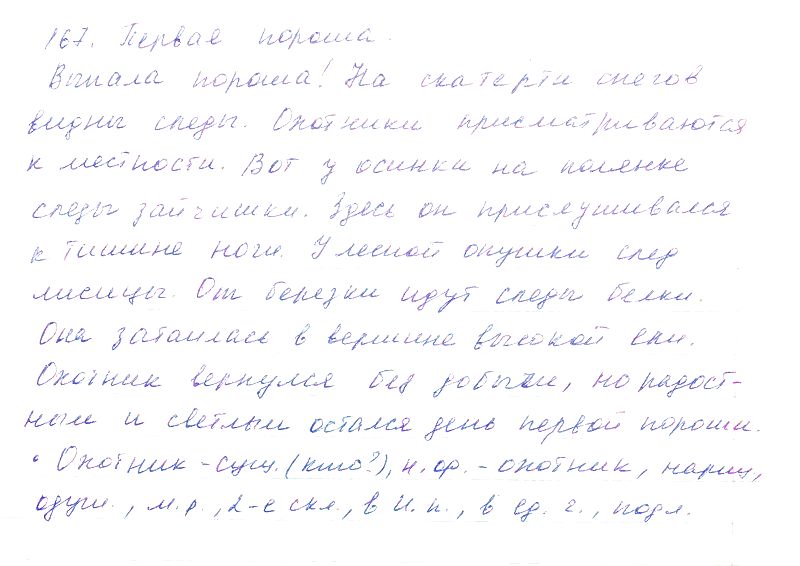 167. Первая пороша.
Выпала пороша! На скатерти снегов
видны следы. Охотники присматриваются
к местности. Вот у осинки на полянке
следы зайчишки. Здесь он прислушивался
к тишине ночи. У лесной опушки след
лисицы. От березки идут следы белки.
Она затаилась в вершине высокой ели.
Охотник вернулся без добычи, но радост-
ным и светлым остался день первой пороши.
• Охотник - сущ. (кто?), н.ф. - охотник, нариц.,
одуш., м.р., 2-е скл., в И.п., в ед.ч., подл.